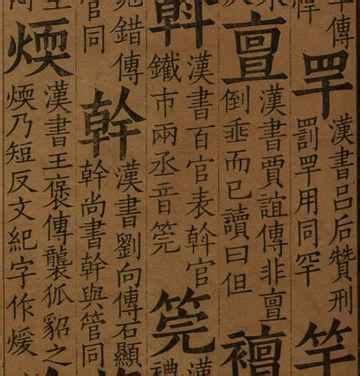 傳
悍
罕
漢書呂后贊刑
罰罕用同罕
竿
亶
漢書賈誼傳非亶
倒垂而已讀曰但
襢
斡
漢書百官表斡官
鐵市兩丞音筦
筦
漢
禮
錯傳
官同
幹
漢書劉向傳石顯
幹尚書幹與管同
煗
漢書王褒傳襲狐貂之
煗乃短反文紀字作煖